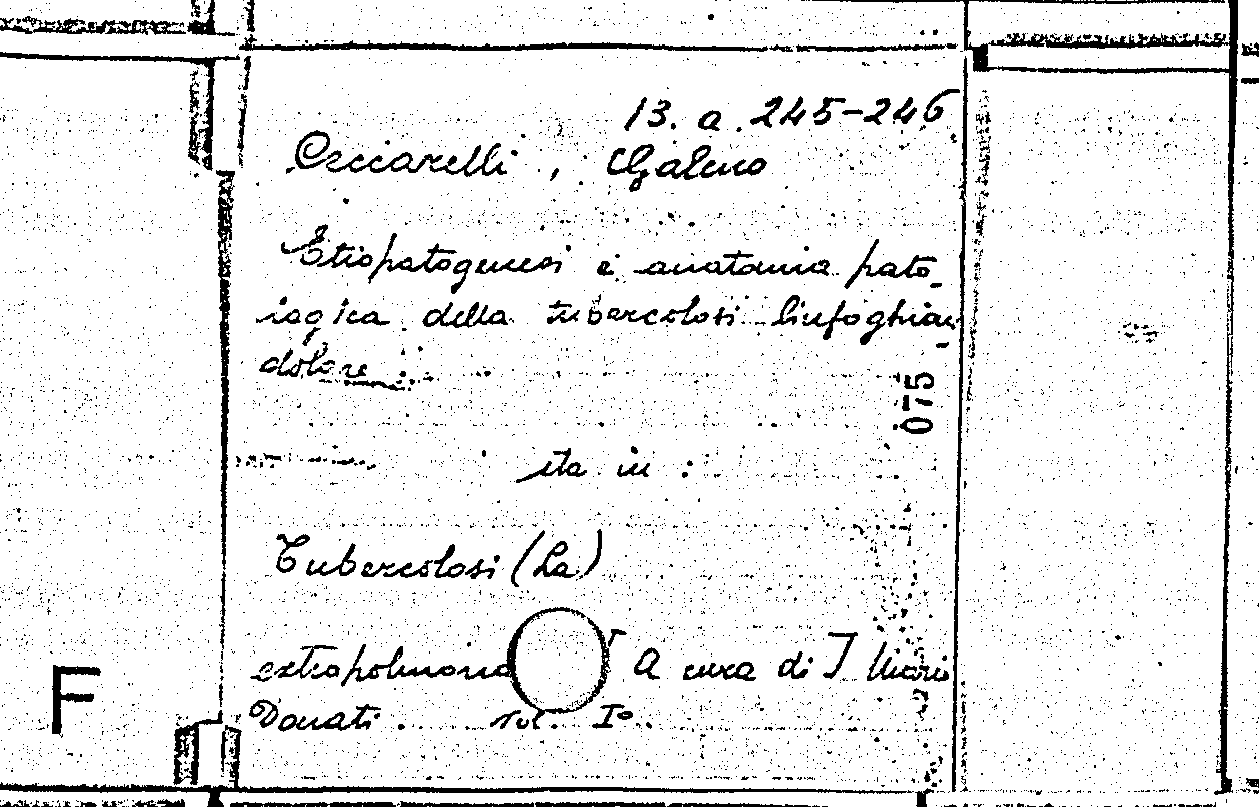 13. a. 245-246
Ceccarelli, Galeno
Etiopatogenesi e anatomia pato-
logica della tubercolosi linfoghian-
dolare
sta in :
075
Tubercolosi (La)
extrapolmonare [A cura di] Mario
Donati. Vol. I°.
F